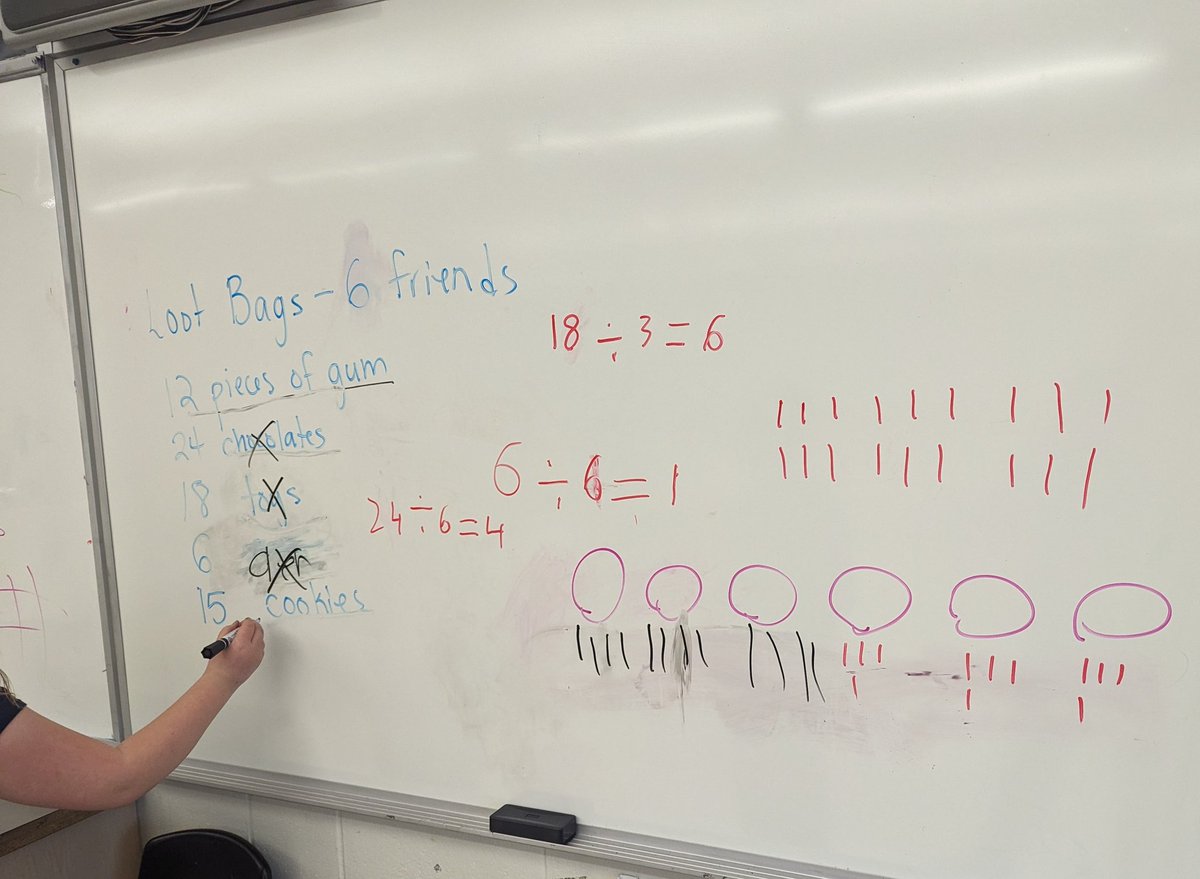 Loot Bags - 6 friends
12 pieces of gum
24 chocolates
18 toys
6
15 cookies
18 ÷ 3 = 6
6 ÷ 6 = 1
24 ÷ 6 = 4